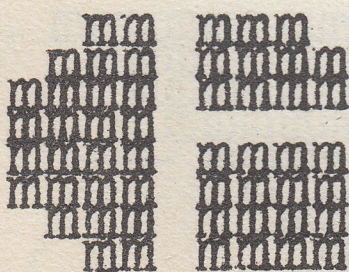 mm mmm
mmm mmmm
mmmm mmmm
mmmm
mmmm mmmm
mmmm mmmm
mmm mmmm
mm mmmm